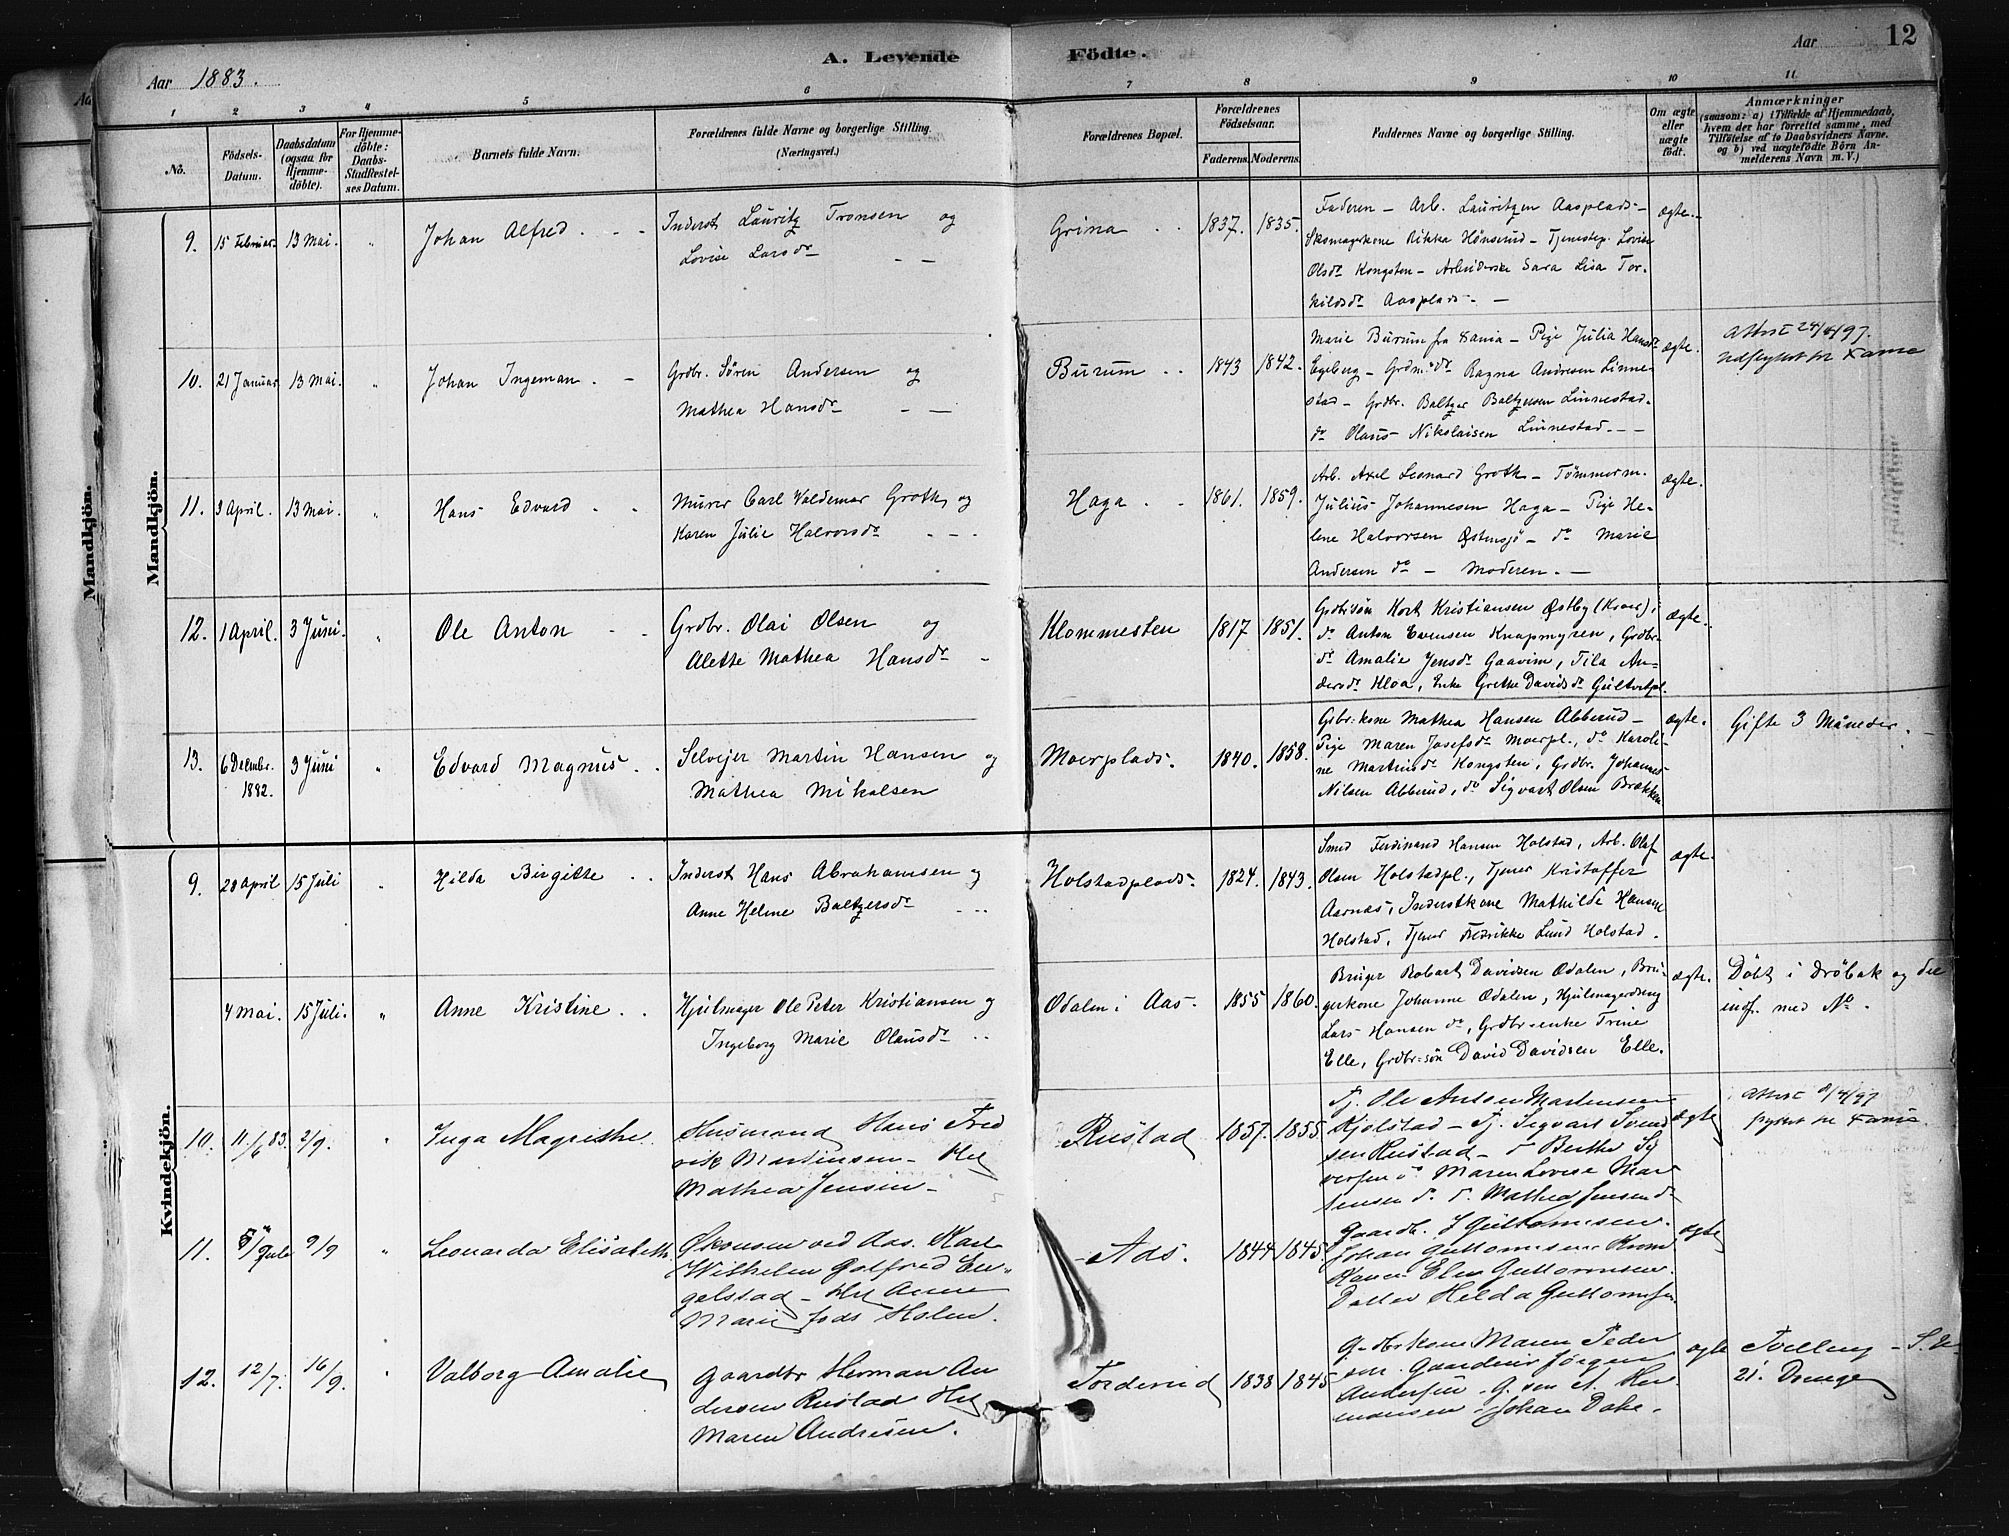 A. Levende Födte.
Aar 1883.
Aar
12
1 2 3 4 5 6 7 8 9 10 11
No.
Födsels-Datum.
Daabsdatum (ogsaa for Hjemme-döbte).
For Hjemme-döbte: Daabs-Stadfestel-ses Datum.
Barnets fulde Navn.
Forældrenes fulde Navne og borgerlige Stilling. (Næringsvei.)
Forældrenes Bopæl.
Forældrenes Födselsaar.
Faderens. Moderens.
Faddernes Navne og borgerlige Stilling.
Om ægte eller uægte födt.
Anmærkninger
(saasom: a) i Tilfælde af Hjemmedaab, hvem der har forrettet samme, med Tilföielse af to Daabsvidners Navne. og b) ved uægtefödte Börn An-melderens Navn m. V.)
Mandkjön.
Mandkjön.
9. 15 Februar 13 Mai. " Johan Alfred
Inderst Lauritz Tronsen og
Lovise Larsdr
Grina 1837. 1835.
Faderen – Arb. Lauritzen Aasplads –
Skomagerkone Rikka Hönsund – Tjenestep. Lovise
Olsdr Kongsten – Arbeiderske Sara Lisa Tor-
kildsdr Aasplads. –
ægte.
10. 21 Januar 13 Mai. " Johan Ingeman.
Grdbr. Sören Andersen og
Mathea Hansdr
Burum 1843 1842.
Marie Burum fra Xania – Pige Julia Hansdr
Egeberg – Grdm.dr Ragna Andresen Linne-
stad – Grdbr. Baltzer Baltzersen Linnestad.
do Olaus Nikolaisen Linnestad. –
ægte.
Attest 24/4/97.
Udflyttet til Xania
11. 3 April. 13 Mai. " Hans Edvard
Murer Carl Valdemar Groth og
Karen Julie Halvorsdr
Haga 1861. 1859.
Arb. Axel Leonard Groth – Tömmerm.
Julius Johannesen Haga – Pige He-
lene Halvorsen Østensjö – do Marie
Andersen do – Moderen. –
ægte.
12. 1 April. 3 Juni. " Ole Anton
Grdbr. Olai Olsen og
Alette Mathea Hansdr
Klommesten 1817 1851.
Grdbrsön Kort Kristiansen Østby (Kroer),
do Anton Evensen Knapmyren, Grdbr.
dr Amalie Jensdr Gaavim, Tila An-
dersdr Kloa, Enke Grethe Davidsdr Gultvetpl.
ægte.
13. 6 Decembr. 1882. 3 Juni " Edvard Magnus
Selvejer Martin Hansen og
Mathea Mikalsen
Moerplads. 1840. 1858.
Grbr.kone Mathea Hansen Abberud –
Pige Maren Josefsdr Moerpl., do Karoli-
ne Martinsdr Kongsten, Grdbr. Johannes
Nilsen Abberud, do Sigvart Olsen Brækken
ægte.
Gifte 3 Måneder.
Kvindekjön.
9. 28 April 15 Juli " Hilda Birgitte
Inderst Hans Abrahamsen og
Anne Helene Baltzersdr
Holstadplads. 1824. 1843.
Smed Ferdinand Hansen Holstad, Arb. Olaf
Olsen Holstadpl., Tjener Kristoffer
Aarnas, Inderstkone Mathilde Hansen
Holstad, Tjener Fredrikke Lund Holstad.
ægte.
4 Mai. 15 Juli. " Anne Kristine
Hjulmager Ole Peter Kristiansen og
Ingeborg Marie Olausdr
Ødalen i Aas. 1855 1860.
Bruger Robart Davidsen Ødalen, Bru-
gerkone Johanne Ødalen, Hjulmagerdreng
Lars Hansen do, Grdbr-enke Trine
Elle, Grdbr-sön David Davidsen Elle.
ægte.
Döbt i Dröbak og der
indf. med No.
10. 11/6 83. 2/9. " Inga Magrethe
Husmand Hans Fred
rik Martinsen – Hu
Mathea Jensen –
Rustad 1857. 1855
Tj. Ole Anton Martinsen
Kjölstad – Tj. Sigvart Svend
sen Rustad – do Berthe Sy
versen do Maren Lovise Mar
tensen do do Mathea Jensen do
ægte
Attest 8/4/97
flyttet til Xania.
11. Juli 9/9 " Leonarda Elisabeth
Økonom ved Aas. Karl
Wilhelm Gotfred En-
gelstad – Hu Anne
Marie föds Holm.
Aas. 1844 1845.
Gaardb. J Guttormsen.
Johan Guttormsen
Kone Elen Guttormsen.
Datter Hilda Guttormsen
ægte
12. 12/7. 16/9. " Valborg Amalie
Gaardbr Herman An
dersen Rustad Hu
Maren Andresen.
Torderud 1838 1845
G.dbrkone Maren Peder
sen. Gaardeier Jörgen
Andersen. G. sön A. Her
mansen. Johan Dahl.
ægte
Tvilling –
21. Drenge